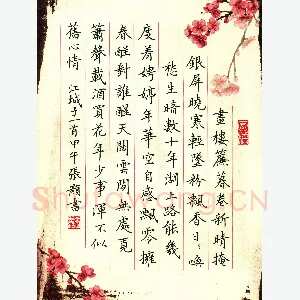 畫樓簾幕卷新晴掩
銀屏曉寒輕墜粉飄香日日喚
愁生暗數十年湖上路能幾
度着娉婷年華空自感飄零擁
春酲對誰醒天闊雲閒無處覓
簫聲載酒買花年少事渾不似
舊心情 江城子一首甲午張書